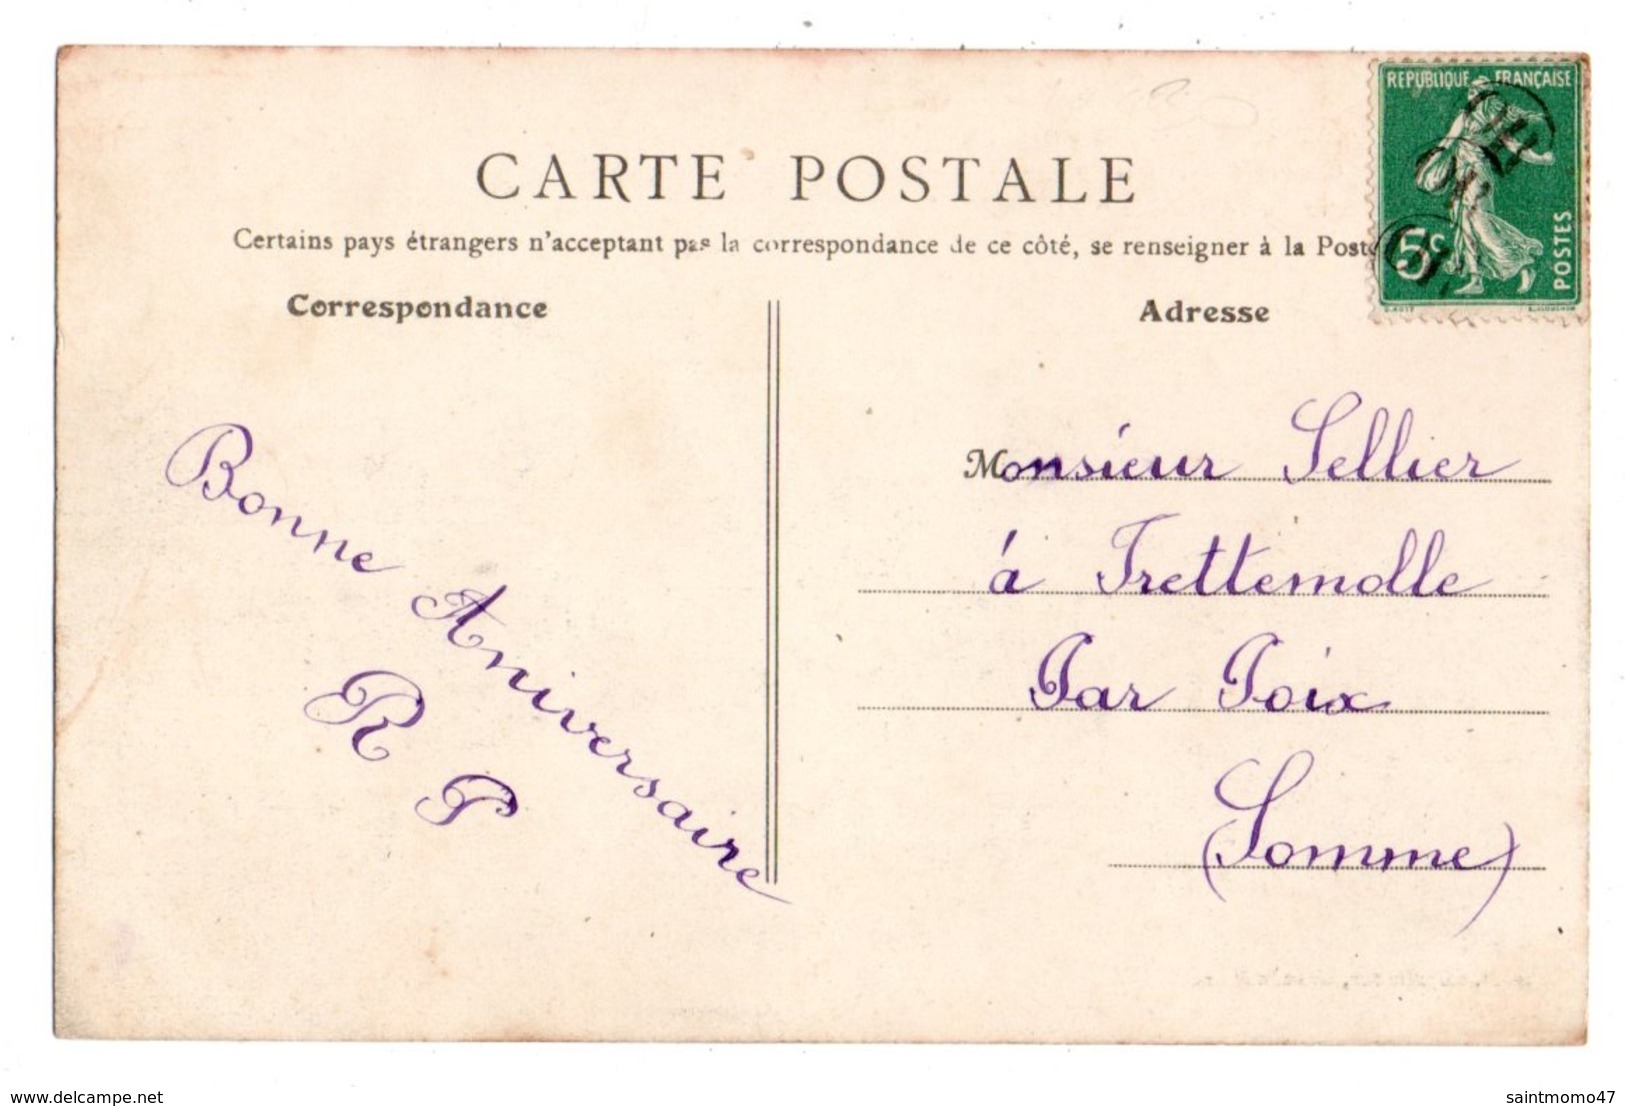 CARTE POSTALE
Certains pays étrangers n'acceptant pas la correspondance de ce côté, se renseigner à la Poste
REPUBLIQUE FRANÇAISE
5c
POSTES
Correspondance
Adresse
Bonne Aniversaire
R P
Monsieur Sellier
à Frettemolle
Par Poix
(Somme)
www.delcampe.net
saintmomo47